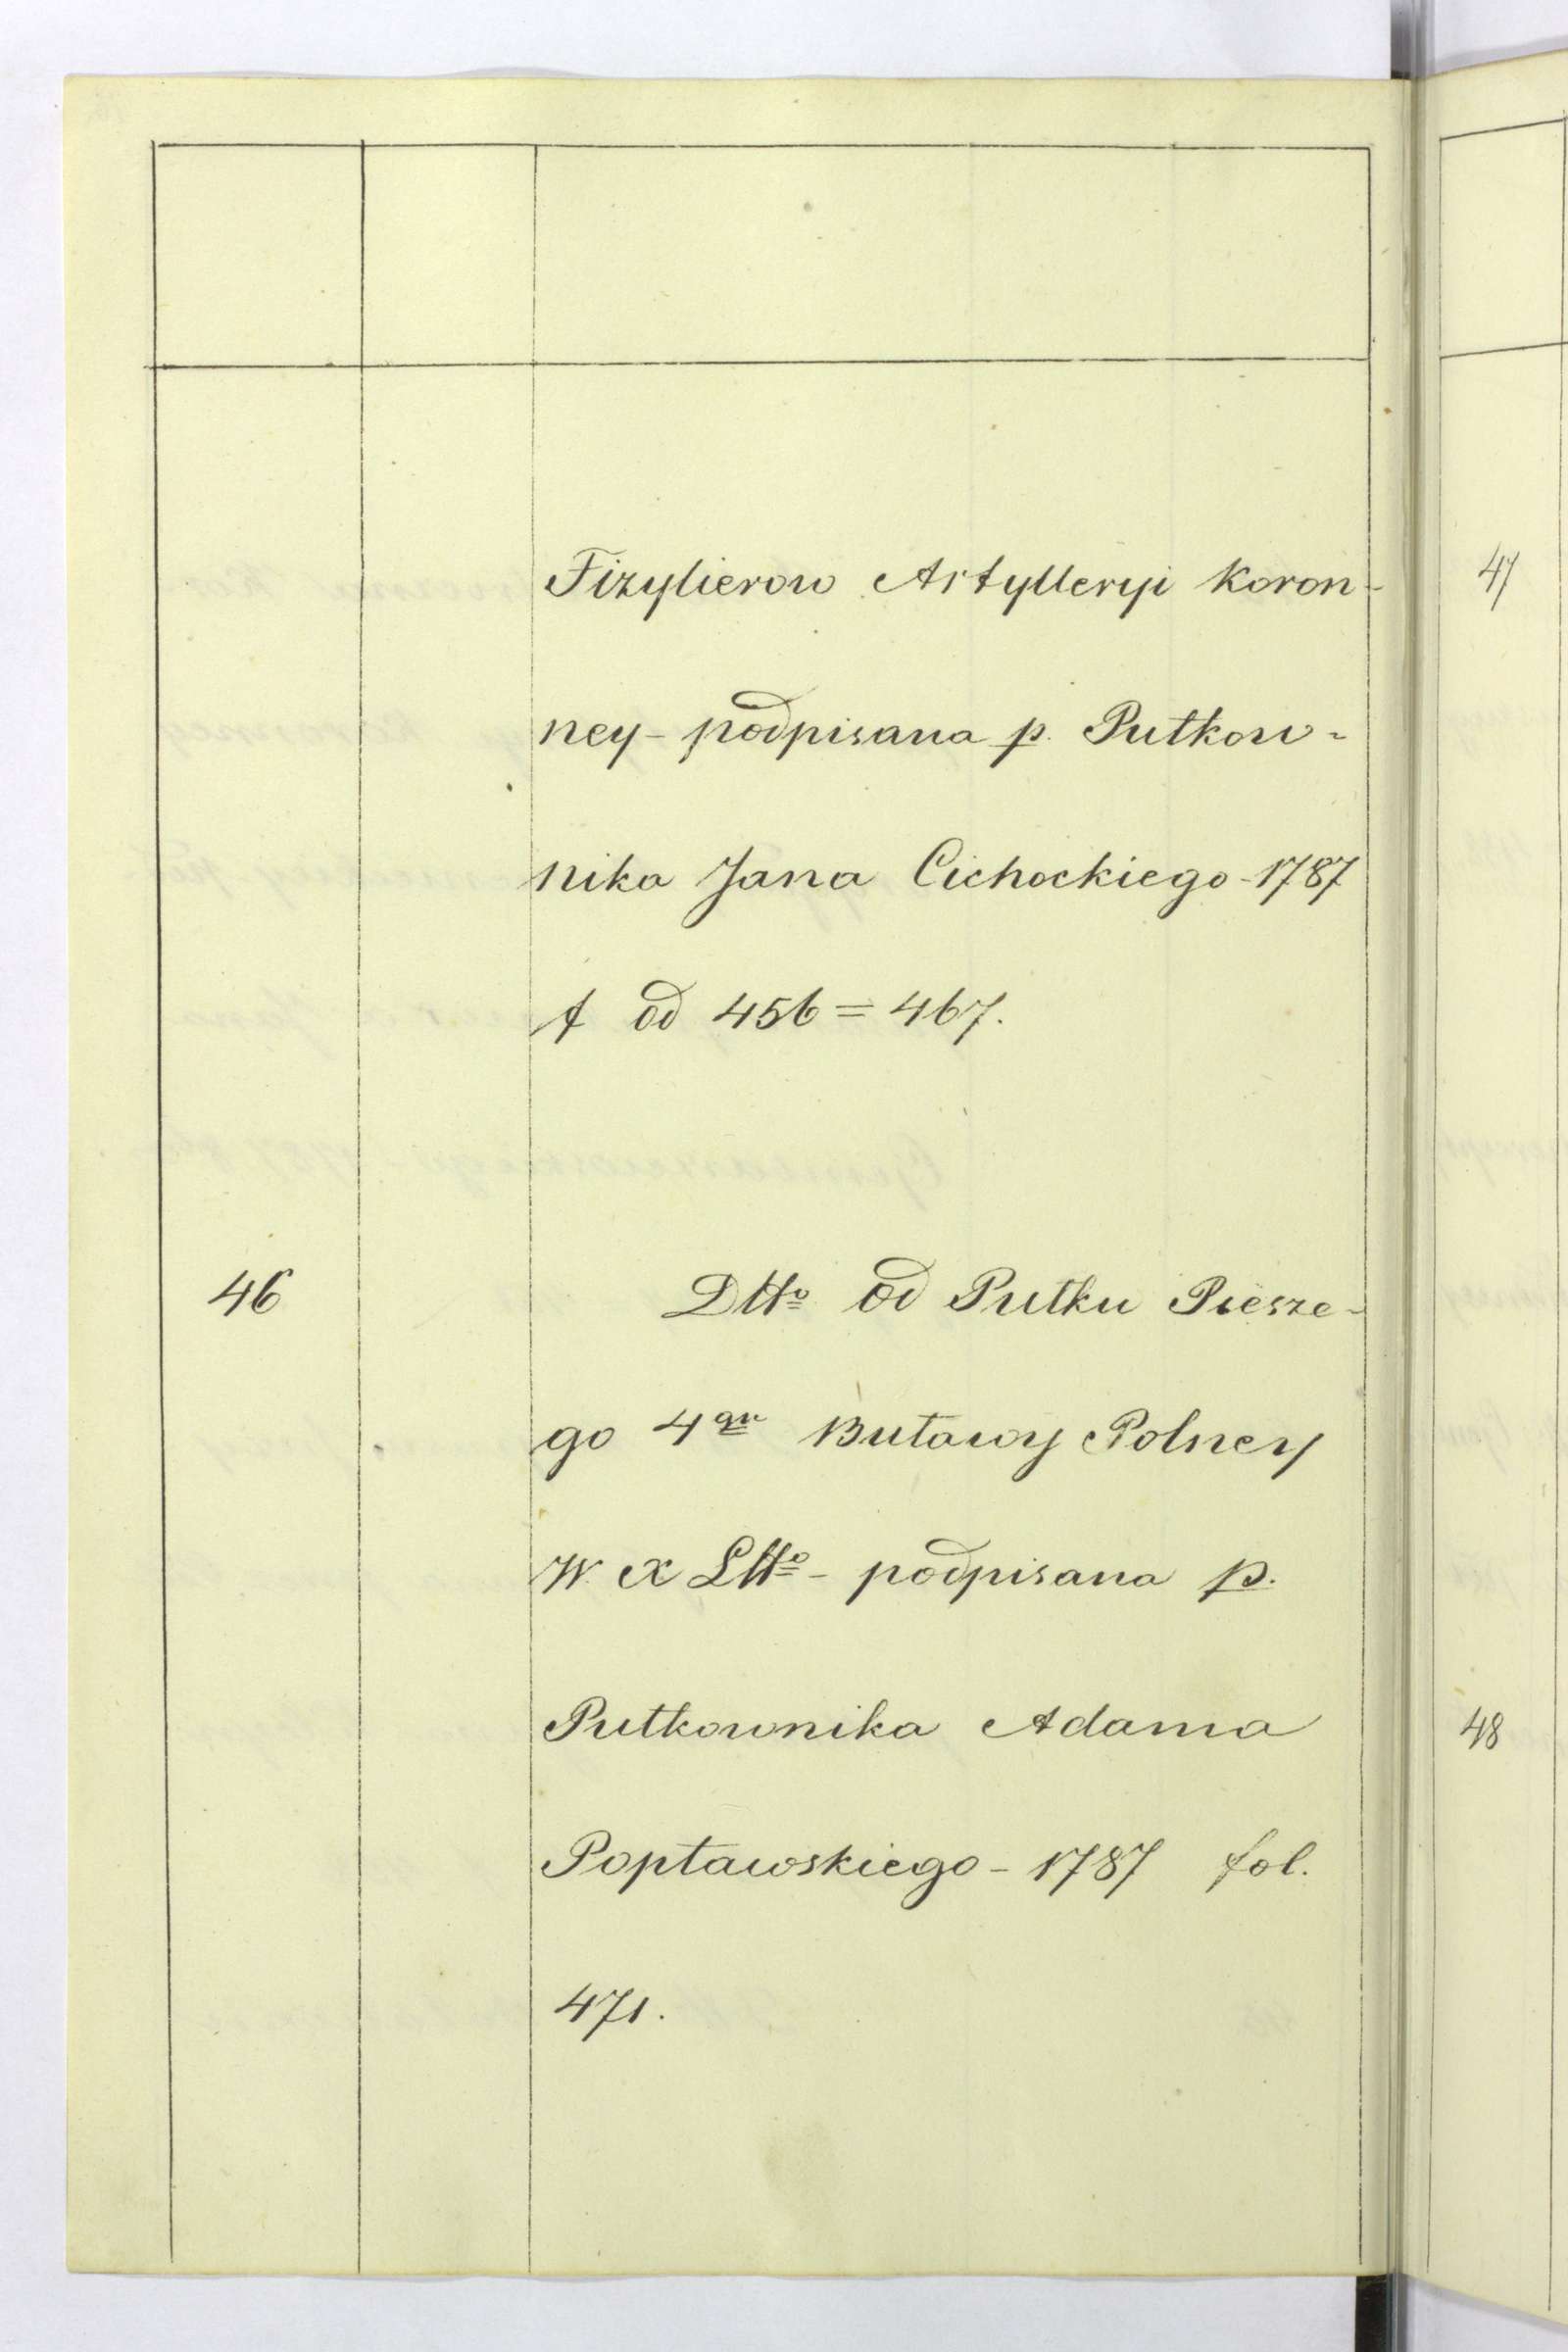 Fizylierow Artylleryi Koron-
ney - podpisana p. Pułkow-
nika Jana Cichockiego - 1787
f od 456 = 467.
46 Dtto od Pułku Piesze-
go 4go Buławy Polney
W. X Ltto - podpisana p.
Pułkownika Adama
Popławskiego - 1787 fol.
471.
47
48